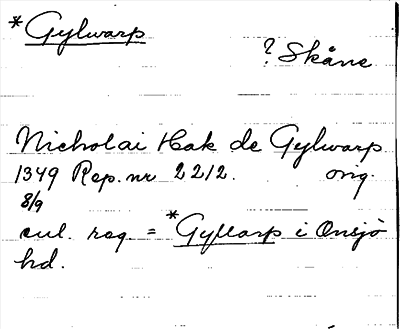 *Gylwarp
? Skåne
Nicholai Hak de Gylwarp
1349 Rep. nr 2212. orig.
8/9
enl. reg. = *Gyllarp i Onsjö
hd.